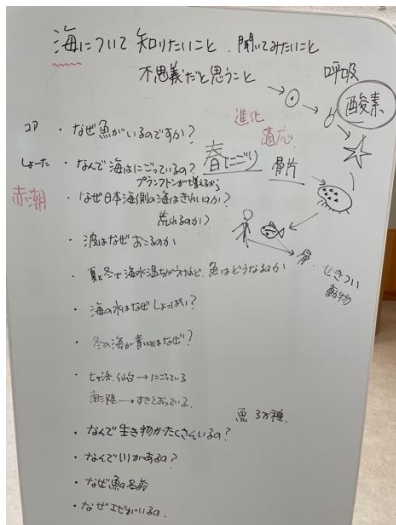 海について知りたいこと、聞いてみたいこと
不思議だと思うこと
呼吸
酸素
進化
適応
コア ・なぜ魚がいるのですか?
しょーた ・なんで海はにごっているの?
春(にごり)
骨片
プランクトンが増えるから
赤潮
・なぜ日本海側の海はきれいのか?
荒れるのか?
・波はなぜおこるのか
・夏と冬で海水温ちがうけれど、魚はどうなるのか
骨
せきつい
動物
・海の水はなぜしょっぱい?
・冬の海が青いのはなぜ?
・七ヶ浜、仙台→にごっている
南三陸→すきとおっている
魚 3万種
・なんで生き物がたくさんいるの?
・なんで
があるの?
・なぜ魚の名前
・なぜエビがいるの。